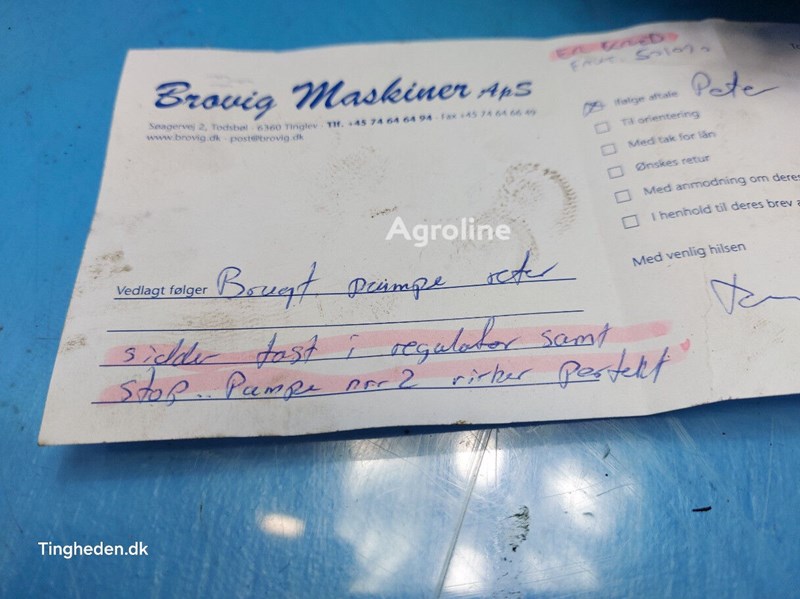 Brovig Maskiner ApS
Søagervej 2, Todsbøl · 6360 Tinglev · Tlf. +45 74 64 64 94 · Fax +45 74 64 66 49
www.brovig.dk · post@brovig.dk
Ifølge aftale Peter
Til orientering
Med tak for lån
Ønskes retur
Med anmodning om deres
I henhold til deres brev a
Med venlig hilsen
Agroline
Vedlagt følger Brugt pumpe
sidder fast i regulator samt
stop.. Pumpe nr 2 virker perfekt
Tingheden.dk